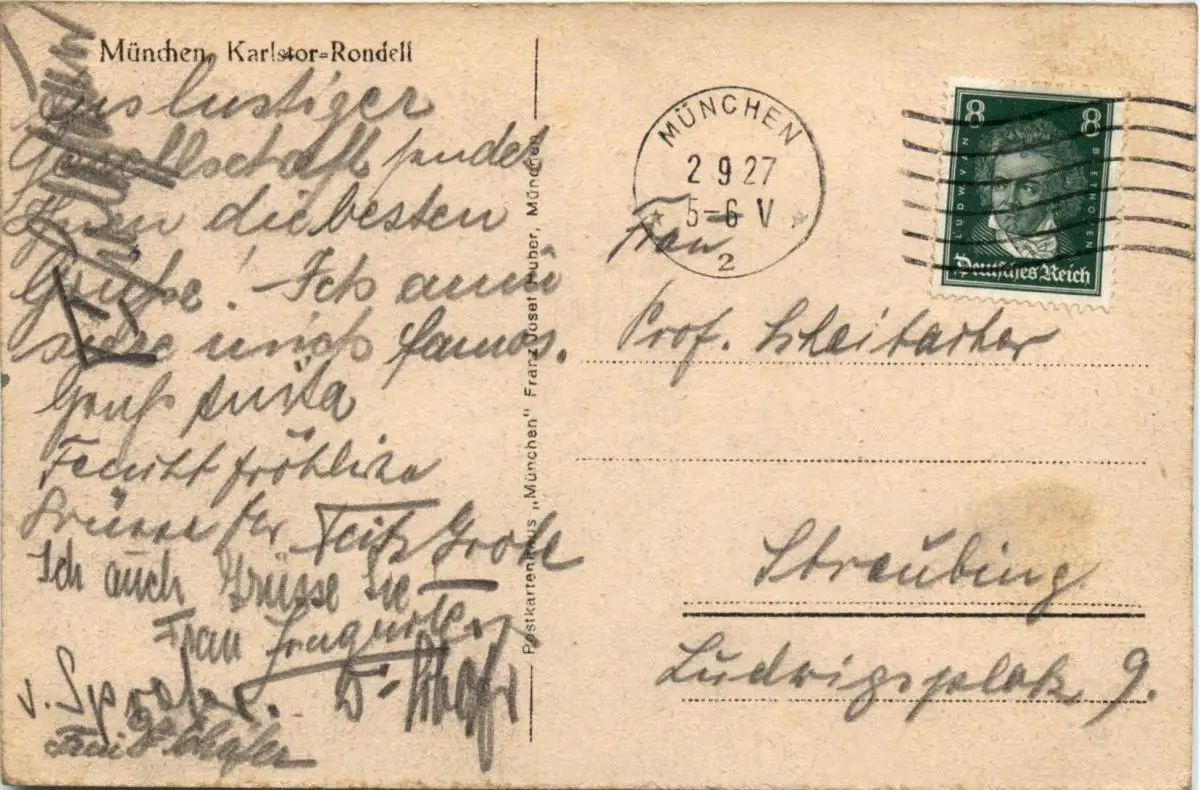 München, Karlstor-Rondell
Aus lustiger
Gesellschaft sendet
Ihnen die besten
Grüße! Ich amü
siere mich famos.
Gruß Anita
Feucht fröhliche
Grüsse Fritz Grote
Ich auch Grüsse Sie
Frau
Dr.
v.
Postkartenhaus „München" Franz Josef Huber, München
MÜNCHEN
2 9 27
5-6 V
2
8 8
LUDW. VAN BEETHOVEN
Deutsches Reich
Frau
Prof.
Straubing
Ludwigsplatz 9.